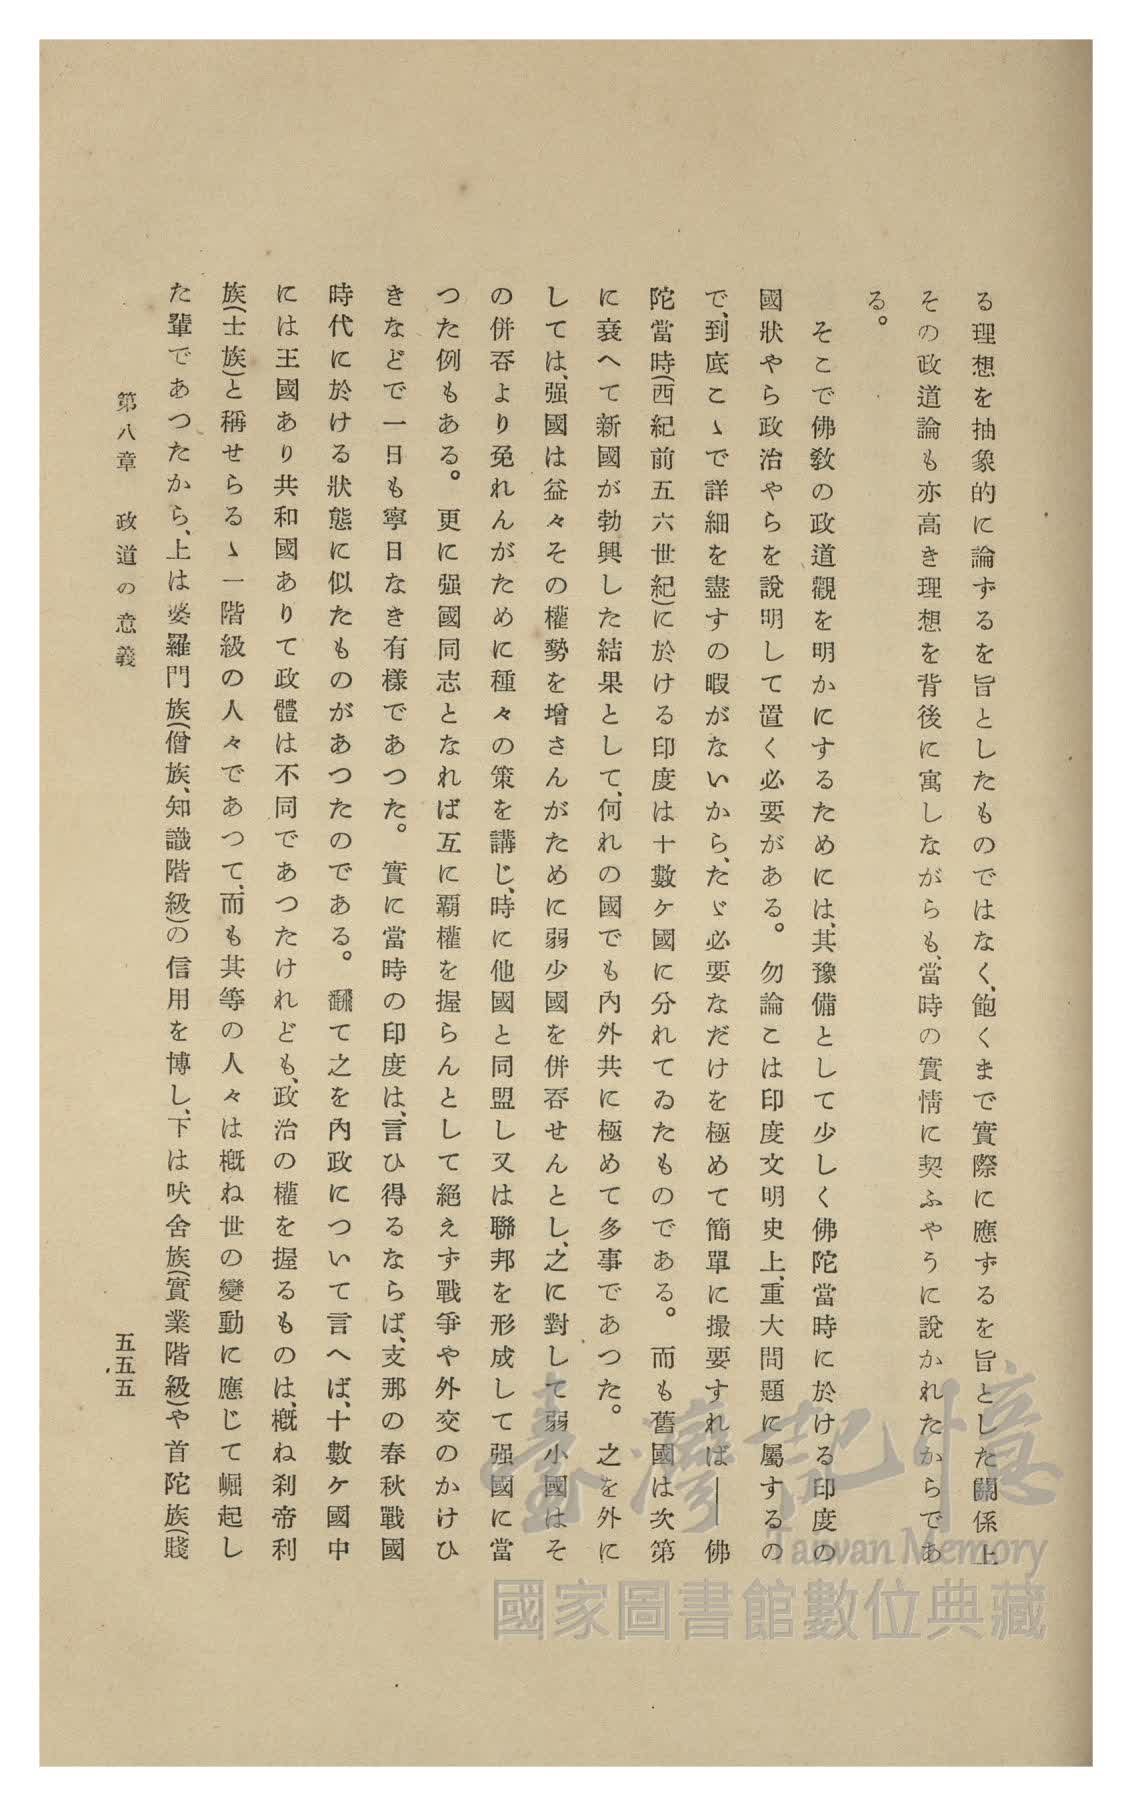 る理想を抽象的に論ずるを旨としたものではなく、飽くまで實際に應ずるを旨とした關係上
その政道論も亦高き理想を背後に寓しながらも、當時の實情に契ふやうに說かれたからであ
る。
そこで佛敎の政道觀を明かにするためには、其豫備として少しく佛陀當時に於ける印度の
國狀やら政治やらを說明して置く必要がある。勿論こは印度文明史上、重大問題に屬するの
で、到底こゝで詳細を盡すの暇がないから、たゞ必要なだけを極めて簡單に撮要すれば――佛
陀當時(西紀前五六世紀)に於ける印度は十數ケ國に分れてゐたものである。而も舊國は次第
に衰へて新國が勃興した結果として、何れの國でも內外共に極めて多事であつた。之を外に
しては、强國は益々その權勢を增さんがために弱少國を併呑せんとし、之に對して弱小國はそ
の併呑より免れんがために種々の策を講じ、時に他國と同盟し又は聯邦を形成して强國に當
つた例もある。更に强國同志となれば互に覇權を握らんとして絕えず戰爭や外交のかけひ
きなどで一日も寧日なき有樣であつた。實に當時の印度は、言ひ得るならば、支那の春秋戰國
時代に於ける狀態に似たものがあつたのである。飜て之を內政について言へば、十數ケ國中
には王國あり共和國ありて政體は不同であつたけれども、政治の權を握るものは、槪ね刹帝利
族(士族)と稱せらるゝ一階級の人々であつて、而も其等の人々は槪ね世の變動に應じて崛起し
た輩であつたから、上は婆羅門族(僧族、知識階級)の信用を博し、下は吠舍族(實業階級)や首陀族(賤
第八章 政道の意義
五五五
臺灣記憶
Taiwan Memory
國家圖書館數位典藏